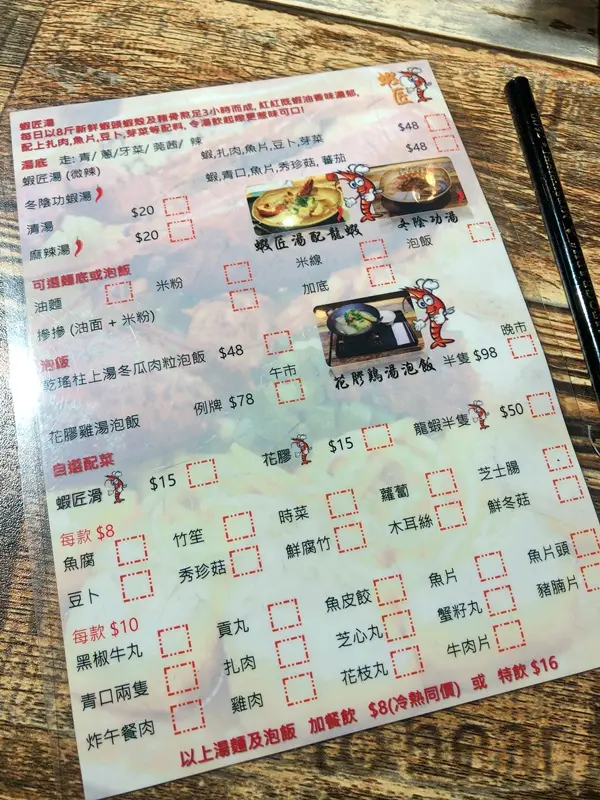 蝦匠
蝦匠湯
每日以8斤新鮮蝦頭蝦殼及雞骨熬足3小時而成, 紅紅既蝦油香味濃郁,
配上扎肉,魚片,豆卜,芽菜等配料, 令湯飲起嚟更惹味可口!
湯底 走: 青/ 蔥/牙菜/ 莞茜/ 辣
蝦匠湯 (微辣) 蝦,扎肉,魚片,豆卜,芽菜 $48
冬陰功蝦湯 蝦,青口,魚片,秀珍菇, 蕃茄 $48
清湯 $20
麻辣湯 $20
蝦匠湯配龍蝦 冬陰功湯
可選麵底或泡飯
油麵 米粉 米線 泡飯
摻摻 (油面 + 米粉) 加底
泡飯
乾瑤柱上湯冬瓜肉粒泡飯 $48
花膠鷄湯泡飯
花膠雞湯泡飯 例牌 $78 午市 半隻 $98 晚市
自選配菜
蝦匠滑 $15 花膠 $15 龍蝦半隻 $50
每款 $8
魚腐 竹笙 時菜 蘿蔔 芝士腸
豆卜 秀珍菇 鮮腐竹 木耳絲 鮮冬菇
每款 $10
黑椒牛丸 貢丸 魚皮餃 魚片 魚片頭
青口兩隻 扎肉 芝心丸 蟹籽丸 豬腩片
炸午餐肉 雞肉 花枝丸 牛肉片
以上湯麵及泡飯 加餐飲 $8(冷熱同價) 或 特飲 $16